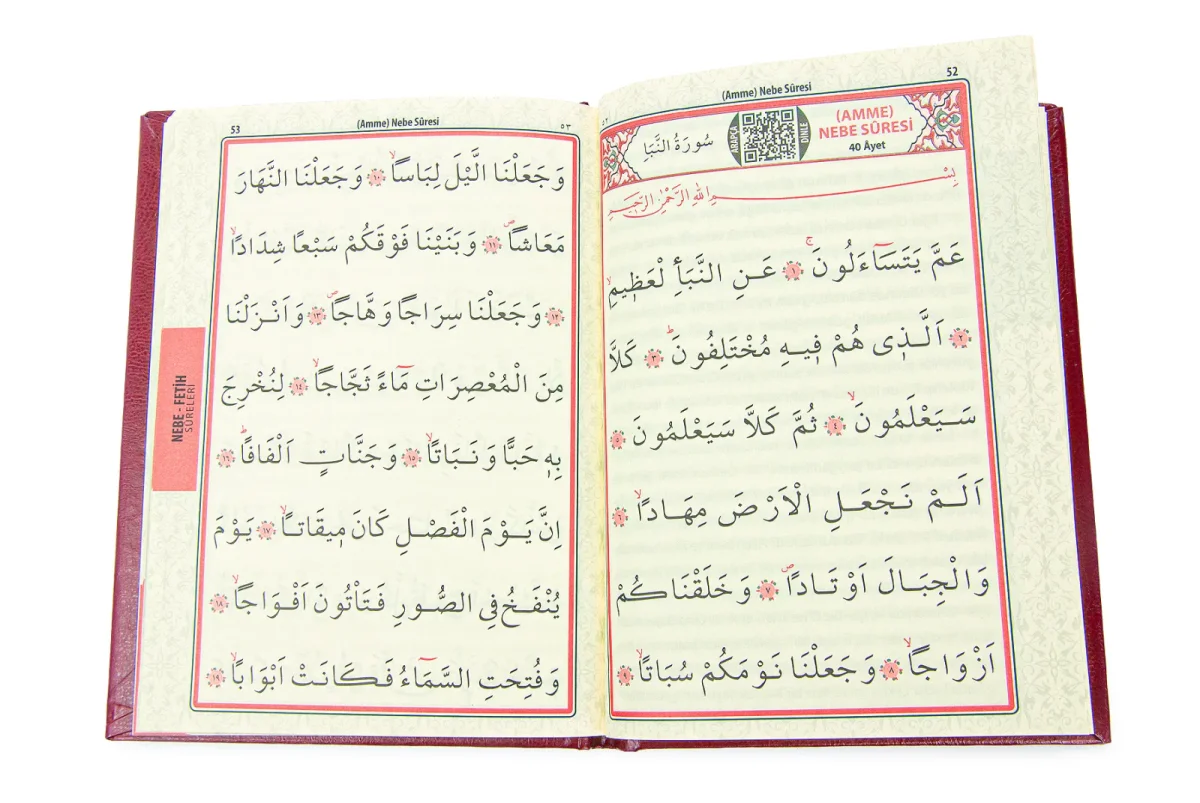 52
(Amme) Nebe Sûresi
٥٢
سُورَةُ النَّبَإِ
ARAPÇA
DİNLE
(AMME)
NEBE SÛRESİ
40 Âyet
بِسْــــــمِ اللهِ الرَّحْمٰنِ الرَّح۪يمِ
عَمَّ يَتَسَٓاءَلُونَۚ ﴿١﴾ عَنِ النَّبَأِ الْعَظ۪يمِۙ
﴿٢﴾ اَلَّذ۪ى هُمْ ف۪يهِ مُخْتَلِفُونَۜ ﴿٣﴾ كَلَّا
سَيَعْلَمُونَۙ ﴿٤﴾ ثُمَّ كَلَّا سَيَعْلَمُونَ ﴿٥﴾
اَلَمْ نَجْعَلِ الْاَرْضَ مِهَادًاۙ ﴿٦﴾
وَالْجِبَالَ اَوْتَادًاۖ ﴿٧﴾ وَخَلَقْنَاكُمْ
اَزْوَاجًاۙ ﴿٨﴾ وَجَعَلْنَا نَوْمَكُمْ سُبَاتًاۙ ﴿٩﴾
53
(Amme) Nebe Sûresi
٥٣
وَجَعَلْنَا الَّيْلَ لِبَاسًاۙ ﴿١٠﴾ وَجَعَلْنَا النَّهَارَ
مَعَاشًاۖ ﴿١١﴾ وَبَنَيْنَا فَوْقَكُمْ سَبْعًا شِدَادًاۙ
﴿١٢﴾ وَجَعَلْنَا سِرَاجًا وَهَّاجًاۖ ﴿١٣﴾ وَاَنْزَلْنَا
مِنَ الْمُعْصِرَاتِ مَٓاءً ثَجَّاجًاۙ ﴿١٤﴾ لِنُخْرِجَ
بِه۪ حَبًّا وَنَبَاتًاۙ ﴿١٥﴾ وَجَنَّاتٍ اَلْفَافًاۜ ﴿١٦﴾
اِنَّ يَوْمَ الْفَصْلِ كَانَ م۪يقَاتًاۙ ﴿١٧﴾ يَوْمَ
يُنْفَخُ فِى الصُّورِ فَتَأْتُونَ اَفْوَاجًاۙ ﴿١٨﴾
وَفُتِحَتِ السَّمَٓاءُ فَكَانَتْ اَبْوَابًاۙ ﴿١٩﴾
NEBE - FETİH
SÛRELERİ